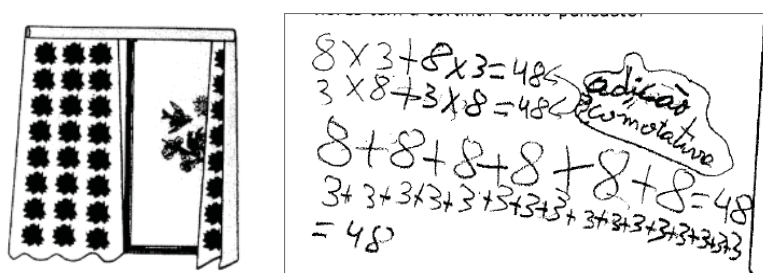 8×3+8×3=48
3×8+3×8=48
adição
é comotativa
8+8+8+8+8+8=48
3+3+3+3+3+3+3+3+3+3+3+3+3+3+3+3
= 48